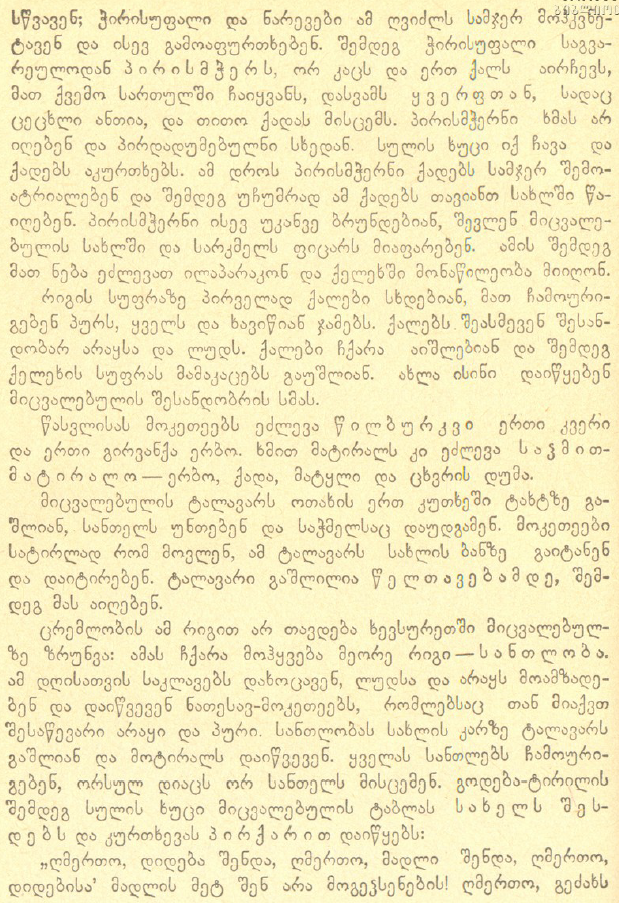 სწვავენ; ჭირისუფალი და ნარევები ამ ღვიძლს სამჯერ მოჰკვნე-
ტავენ და ისევ გამოაფურთხებენ. შემდეგ ჭირისუფალი საგვა-
რეულოდან პირისმჭერს, ორ კაცს და ერთ ქალს აირჩევს,
მათ ქვემო სართულში ჩაიყვანს, დასვამს ყვერფთან, სადაც
ცეცხლი ანთია, და თითო ქადას მისცემს. პირისმჭერნი ხმას არ
იღებენ და პირდადუმებულნი სხედან. სულის ხუცი იქ ჩავა და
ქადებს აკურთხებს. ამ დროს პირისმჭერნი ქადებს სამჯერ შემო-
ატრიალებენ და შემდეგ უჩუმრად ამ ქადებს თავიანთ სახლში წა-
იღებენ. პირისმჭერნი ისევ უკანვე ბრუნდებიან, შევლენ მიცვალე-
ბულის სახლში და სარკმელს ფიცარს მიაფარებენ. ამის შემდეგ
მათ ნება ეძლევათ ილაპარაკონ და ქელეხში მონაწილეობა მიიღონ.
რიგის სუფრაზე პირველად ქალები სხდებიან, მათ ჩამოური-
გებენ პურს, ყველს და ხავიწიან ჯამებს. ქალებს შეასმევენ შესან-
დობარ არაყსა და ლუდს. ქალები ჩქარა აიშლებიან და შემდეგ
ქელეხის სუფრას მამაკაცებს გაუშლიან. ახლა ისინი დაიწყებენ
მიცვალებულის შესანდობრის სმას.
წასვლისას მოკეთეებს ეძლევა წილბურკვი ერთი კვერი
და ერთი გირვანქა ერბო. ხმით მატირალს კი ეძლევა საჴმით-
მატირალო — ერბო, ქადა, მატყლი და ცხვრის დუმა.
მიცვალებულის ტალავარს ოთახის ერთ კუთხეში ტახტზე გა-
შლიან, სანთელს უნთებენ და საჭმელსაც დაუდგამენ. მოკეთეები
სატირლად რომ მოვლენ, ამ ტალავარს სახლის ბანზე გაიტანენ
და დაიტირებენ. ტალავარი გაშლილია წელთავებამდე, შემ-
დეგ მას აიღებენ.
ცრემლობის ამ რიგით არ თავდება ხევსურეთში მიცვალებულ-
ზე ზრუნვა: ამას ჩქარა მოჰყვება მეორე რიგი — სანთლობა.
ამ დღისათვის საკლავებს დახოცავენ, ლუდსა და არაყს მოამზადე-
ბენ და დაიწვევენ ნათესავ-მოკეთეებს, რომლებსაც თან მიაქვთ
შესაწევარი არაყი და პური. სანთლობას სახლის კარზე ტალავარს
გაშლიან და მოტირალს დაიწვევენ. ყველას სანთლებს ჩამოური-
გებენ, ორსულ დიაცს ორ სანთელს მისცემენ. გოდება-ტირილის
შემდეგ სულის ხუცი მიცვალებულის ტაბლას სახელს შეს-
დებს და კურთხევას პირქარით დაიწყებს:
„ღმერთო, დიდება შენდა, ღმერთო, მადლი შენდა, ღმერთო,
დიდებისა’ მადლის მეტ შენ არა მოგეჴსენების! ღმერთო, გეძახს